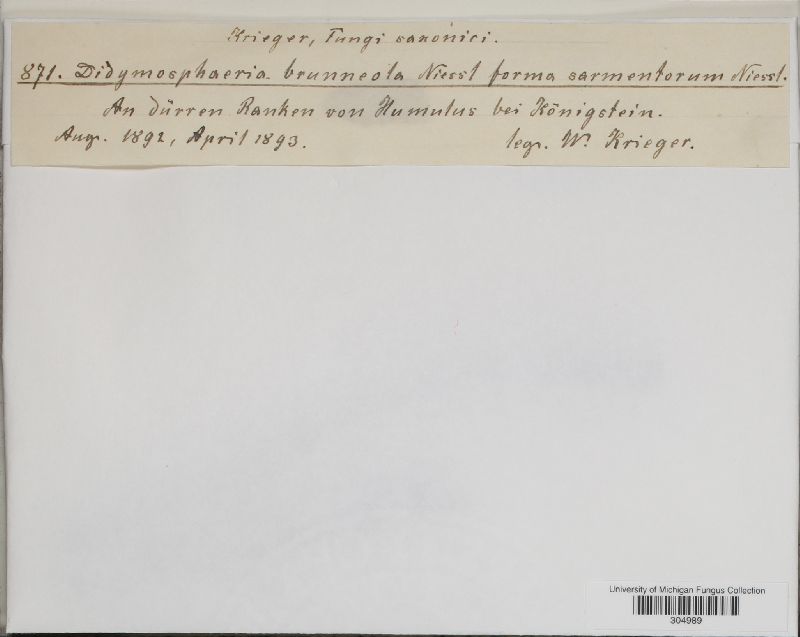 Krieger, Fungi saxonici.
871. Didymosphaeria brunneola Niessl forma sarmentorum Niessl.
An dürren Ranken von Humulus bei Königstein.
Aug. 1892, April 1893. leg. W. Krieger.
University of Michigan Fungus Collection
304989